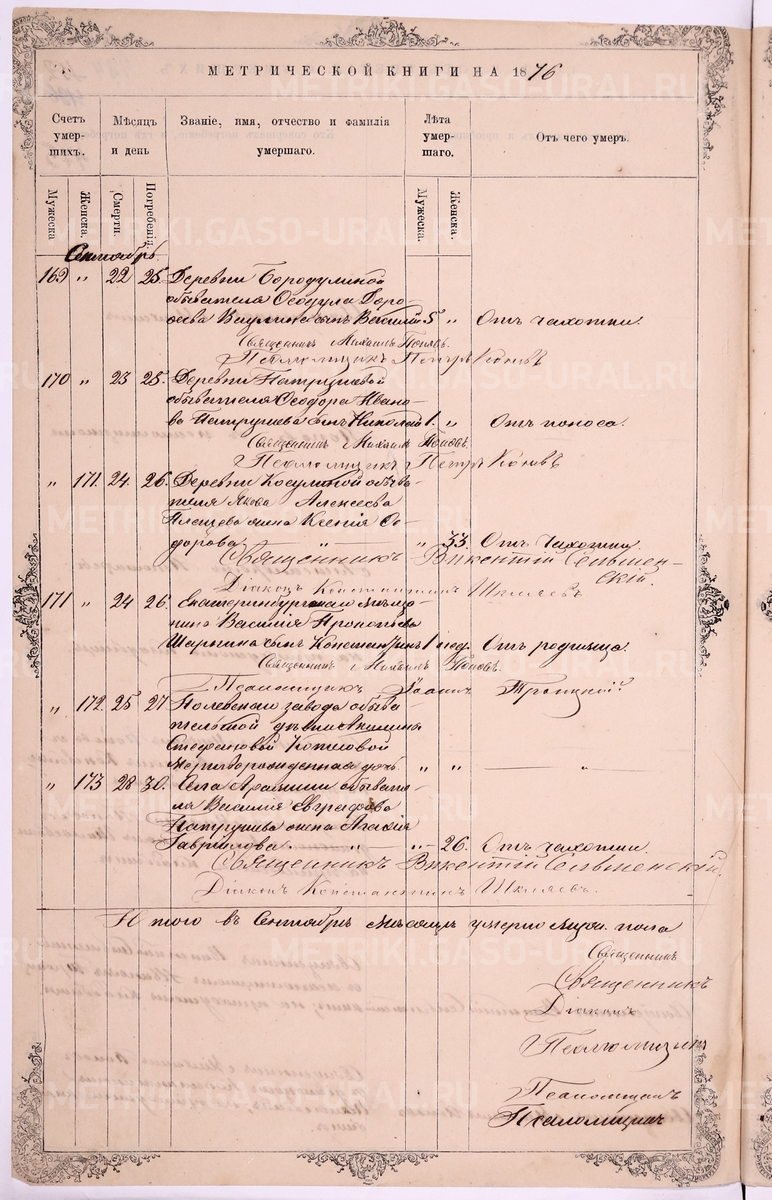 МЕТРИЧЕСКОЙ КНИГИ НА 1876
Счетъ умер-шихъ.
Мѣсяцъ и день
Званіе, имя, отчество и фамилія умершаго.
Лѣта умер-шаго.
Отъ чего умеръ.
Мужеска
Женска.
Смерти.
Погребенія.
Мужеска.
Женска.
Сентябрь.
169 „ 22 25. Деревни Бородулиной
обывателя Ѳеодула Доро-
ѳеева Ваулина сынъ Василій 5 „ Отъ чахотки.
Священникъ Михаилъ Поповъ.
Псаломщикъ Петръ Коновъ
170 „ 23 25. Деревни Патрушевой
обывателя Ѳеодора Ивано-
ва Патрушева сынъ Николай 1. „ Отъ поноса.
Священникъ Михаилъ Поповъ.
Псаломщикъ Петръ Коновъ
„ 171. 24. 26. Деревни Косулиной обыва-
теля Якова Алексѣева
Плещева жена Ксенія Ѳе-
дорова „ „ 33. Отъ Чахотки.
Священникъ Викентій Сельмен-
скій.
Діаконъ Константинъ Шкляевъ
171 „ 24 26. Екатеринбургскаго мѣща-
нина Василія Прокопьева
сынъ Константинъ 1 нед. Отъ родимца.
Священникъ Михаилъ Поповъ.
Псаломщикъ Іоаннъ Троицкій.
„ 172. 25 27 Полевскаго завода обыва-
тельской дѣвки Акилины
Стефановой
Мертворожденная дочь „ „ — „
„ 173 28 30. Села Арамили обывате-
ля Василія Евграфова
Патрушева жена Агафія
Гаврилова. „ „ 26. Отъ чахотки.
Священникъ Викентій Сельменскій.
Діаконъ Константинъ Шкляевъ.
Итого въ Сентябрѣ мѣсяцѣ умерло муж. пола
Священникъ
Священникъ
Діаконъ
Псаломщикъ
Псаломщикъ
Псаломщикъ
METRIKI.GASO-URAL.RU